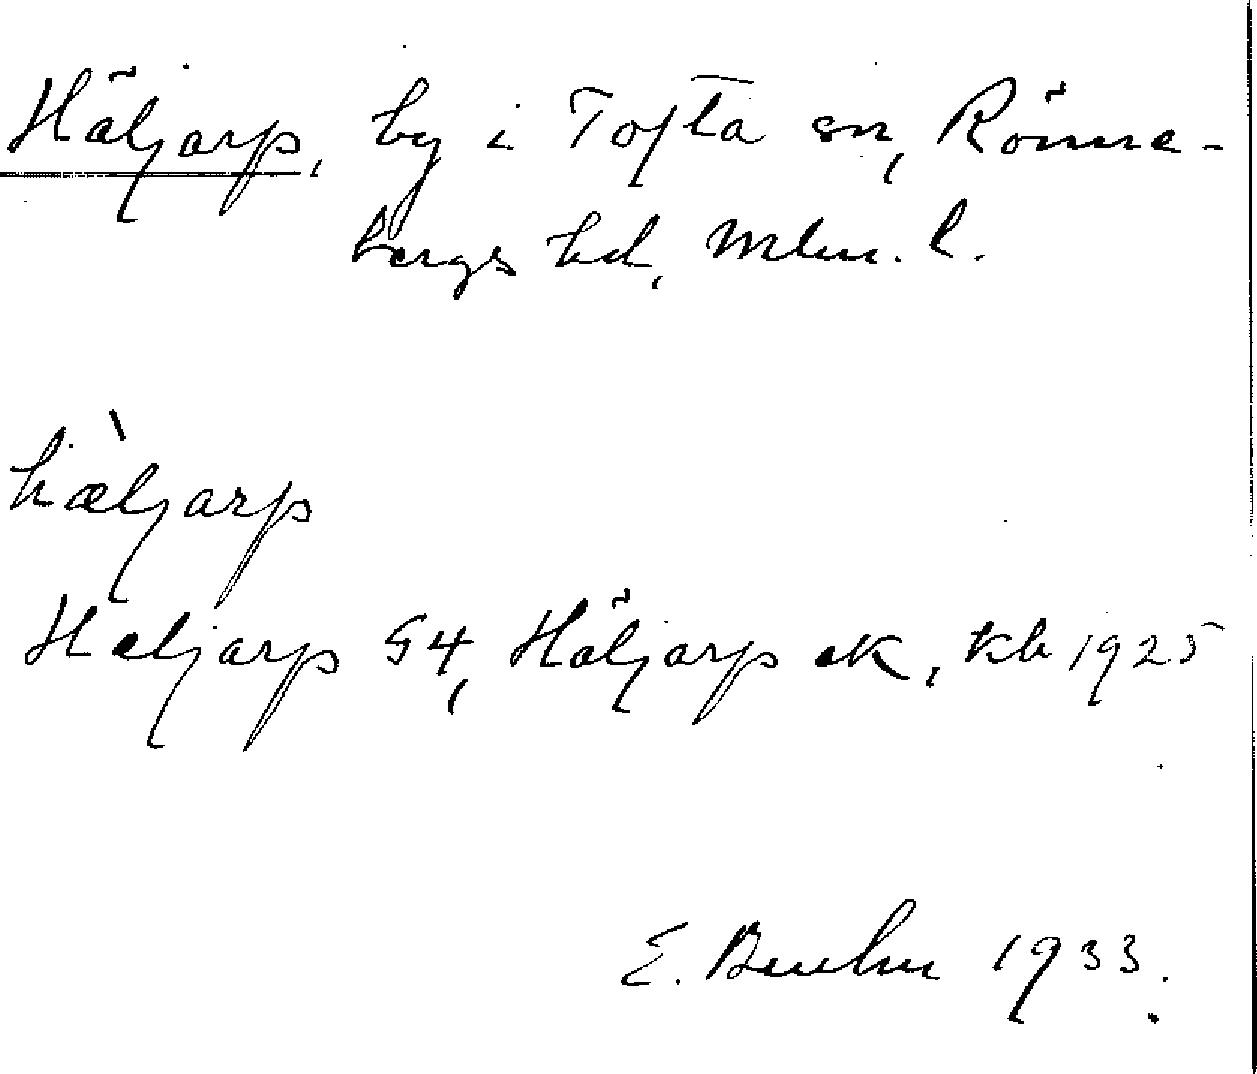 Häljarp, by i Tofta sn, Rönne-
bergs hd, Mlm. l.
hæ̀ljarp
Heljarp G4, Häljarp ek, kb 1925
E. 1933.